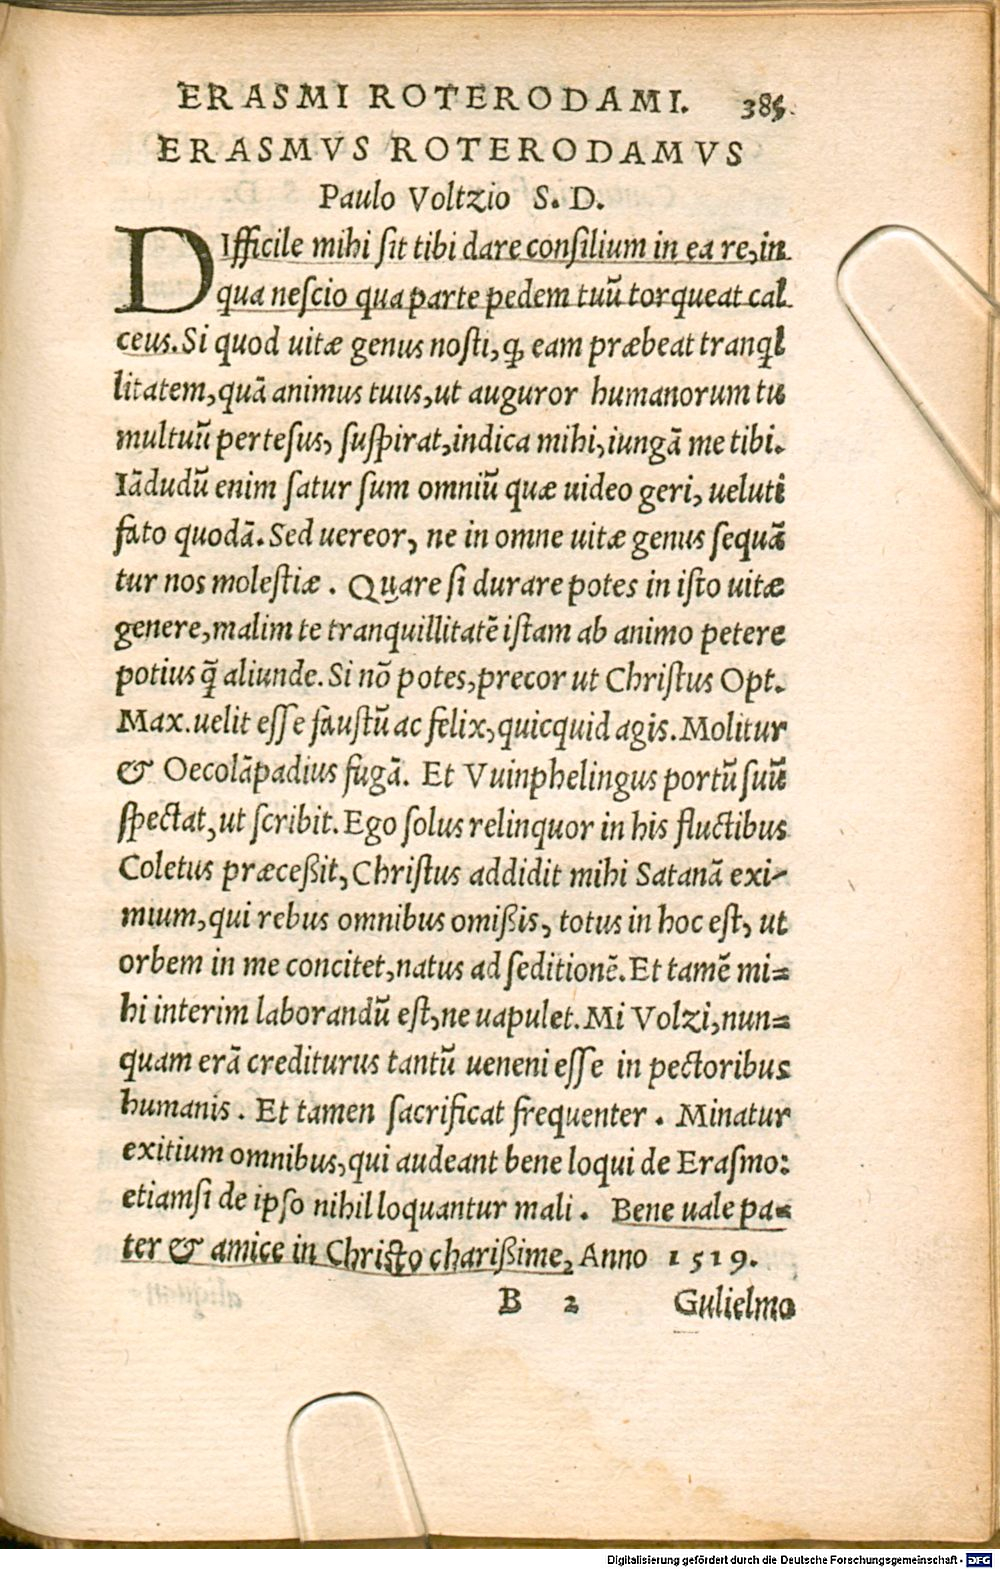 ERASMI ROTERODAMI. 385.
ERASMVS ROTERODAMVS
Paulo Voltzio S. D.
DIfficile mihi ſit tibi dare conſilium in ea re, in
qua neſcio qua parte pedem tuũ torqueat cal
ceus. Si quod uitæ genus noſti, ꝙ eam præbeat tranql
litatem, quã animus tuus, ut auguror humanorum tu
multuũ pertesus, ſuſpirat, indica mihi, iungã me tibi.
Iãdudũ enim ſatur ſum omniũ quæ uideo geri, ueluti
fato quodã. Sed uereor, ne in omne uitæ genus ſequã
tur nos moleſtiæ. Quare ſi durare potes in iſto uitæ
genere, malim te tranquillitatẽ iſtam ab animo petere
potius q̃ aliunde. Si nõ potes, precor ut Chriſtus Opt.
Max. uelit eſſe fauſtũ ac felix, quicquid agis. Molitur
& Oecolãpadius fugã. Et Vuinphelingus portũ ſuũ
ſpectat, ut ſcribit. Ego ſolus relinquor in his fluctibus
Coletus præceßit, Chriſtus addidit mihi Satanã exi-
mium, qui rebus omnibus omißis, totus in hoc eſt, ut
orbem in me concitet, natus ad ſeditionẽ. Et tamẽ mi=
hi interim laborandũ eſt, ne uapulet. Mi Volzi, nun=
quam erã crediturus tantũ ueneni eſſe in pectoribus
humanis. Et tamen ſacrificat frequenter. Minatur
exitium omnibus, qui audeant bene loqui de Eraſmo:
etiamſi de ipſo nihil loquantur mali. Bene uale pa=
ter & amice in Chriſto charißime, Anno 1519.
B 2 Gulielmo
Digitalisierung gefördert durch die Deutsche Forschungsgemeinschaft - DFG